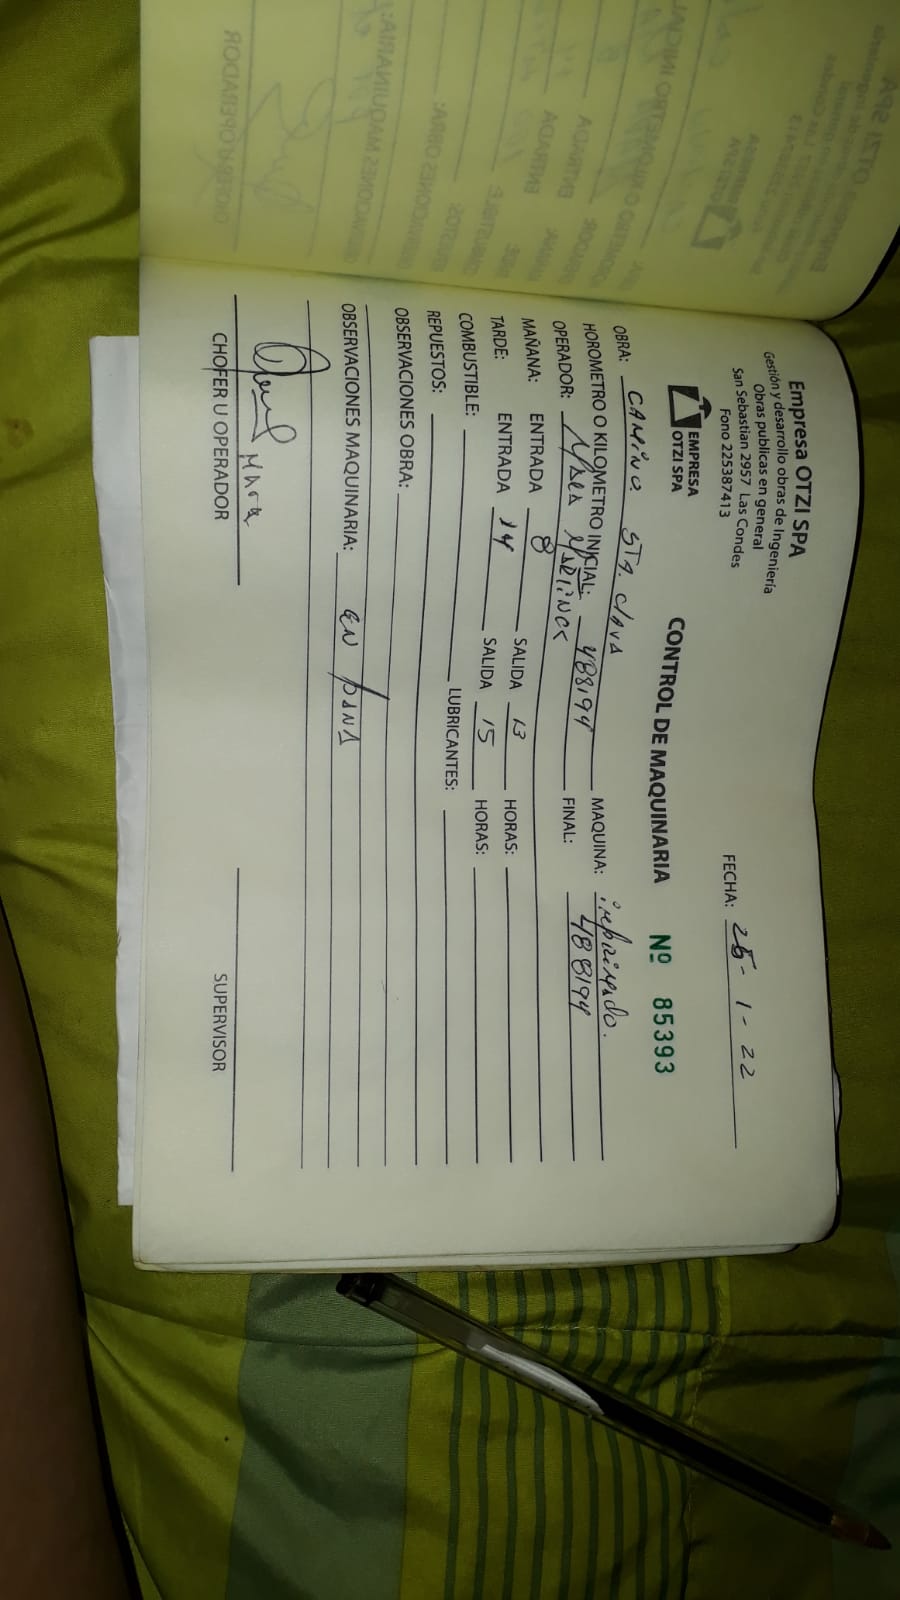 Empresa OTZI SPA
Gestión y desarrollo obras de Ingeniería
Obras publicas en general
San Sebastian 2957 Las Condes
Fono 225387413
EMPRESA
OTZI SPA
FECHA: 25-1-22
CONTROL DE MAQUINARIA Nº 85393
OBRA: CAMINO. STA. Clara MAQUINA: imprimado.
HOROMETRO O KILOMETRO INICIAL: 488194 FINAL: 488194
OPERADOR:
MAÑANA: ENTRADA 8 SALIDA 13 HORAS:
TARDE: ENTRADA 14 SALIDA 15 HORAS:
COMBUSTIBLE: LUBRICANTES:
REPUESTOS:
OBSERVACIONES OBRA:
OBSERVACIONES MAQUINARIA: EN pana
CHOFER U OPERADOR SUPERVISOR